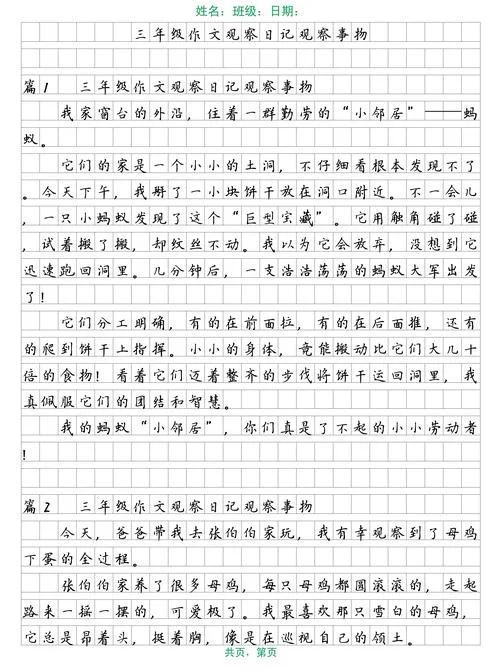 姓名：班级：日期：
三年级作文观察日记观察事物
篇1 三年级作文观察日记观察事物
我家窗台的外沿，住着一群勤劳的“小邻居”——蚂
蚁。
它们的家是一个小小的土洞，不仔细看根本发现不了
。今天下午，我掰了一小块饼干放在洞口附近。不一会儿
，一只小蚂蚁发现了这个“巨型宝藏”。它用触角碰了碰
，试着搬了搬，却纹丝不动。我以为它会放弃，没想到它
迅速跑回洞里。几分钟后，一支浩浩荡荡的蚂蚁大军出发
了！
它们分工明确，有的在前面拉，有的在后面推，还有
的爬到饼干上指挥。小小的身体，竟能搬动比它们大几十
倍的食物！看着它们迈着整齐的步伐将饼干运回洞里，我
真佩服它们的团结和智慧。
我的蚂蚁“小邻居”，你们真是了不起的小小劳动者
！
篇2 三年级作文观察日记观察事物
今天，爸爸带我去张伯伯家玩，我有幸观察到了母鸡
下蛋的全过程。
张伯伯家养了很多母鸡，每只母鸡都圆滚滚的，走起
路来一摇一摆的，可爱极了。我最喜欢那只雪白的母鸡，
它总是昂着头，挺着胸，像是在巡视自己的领土。
共页，第页